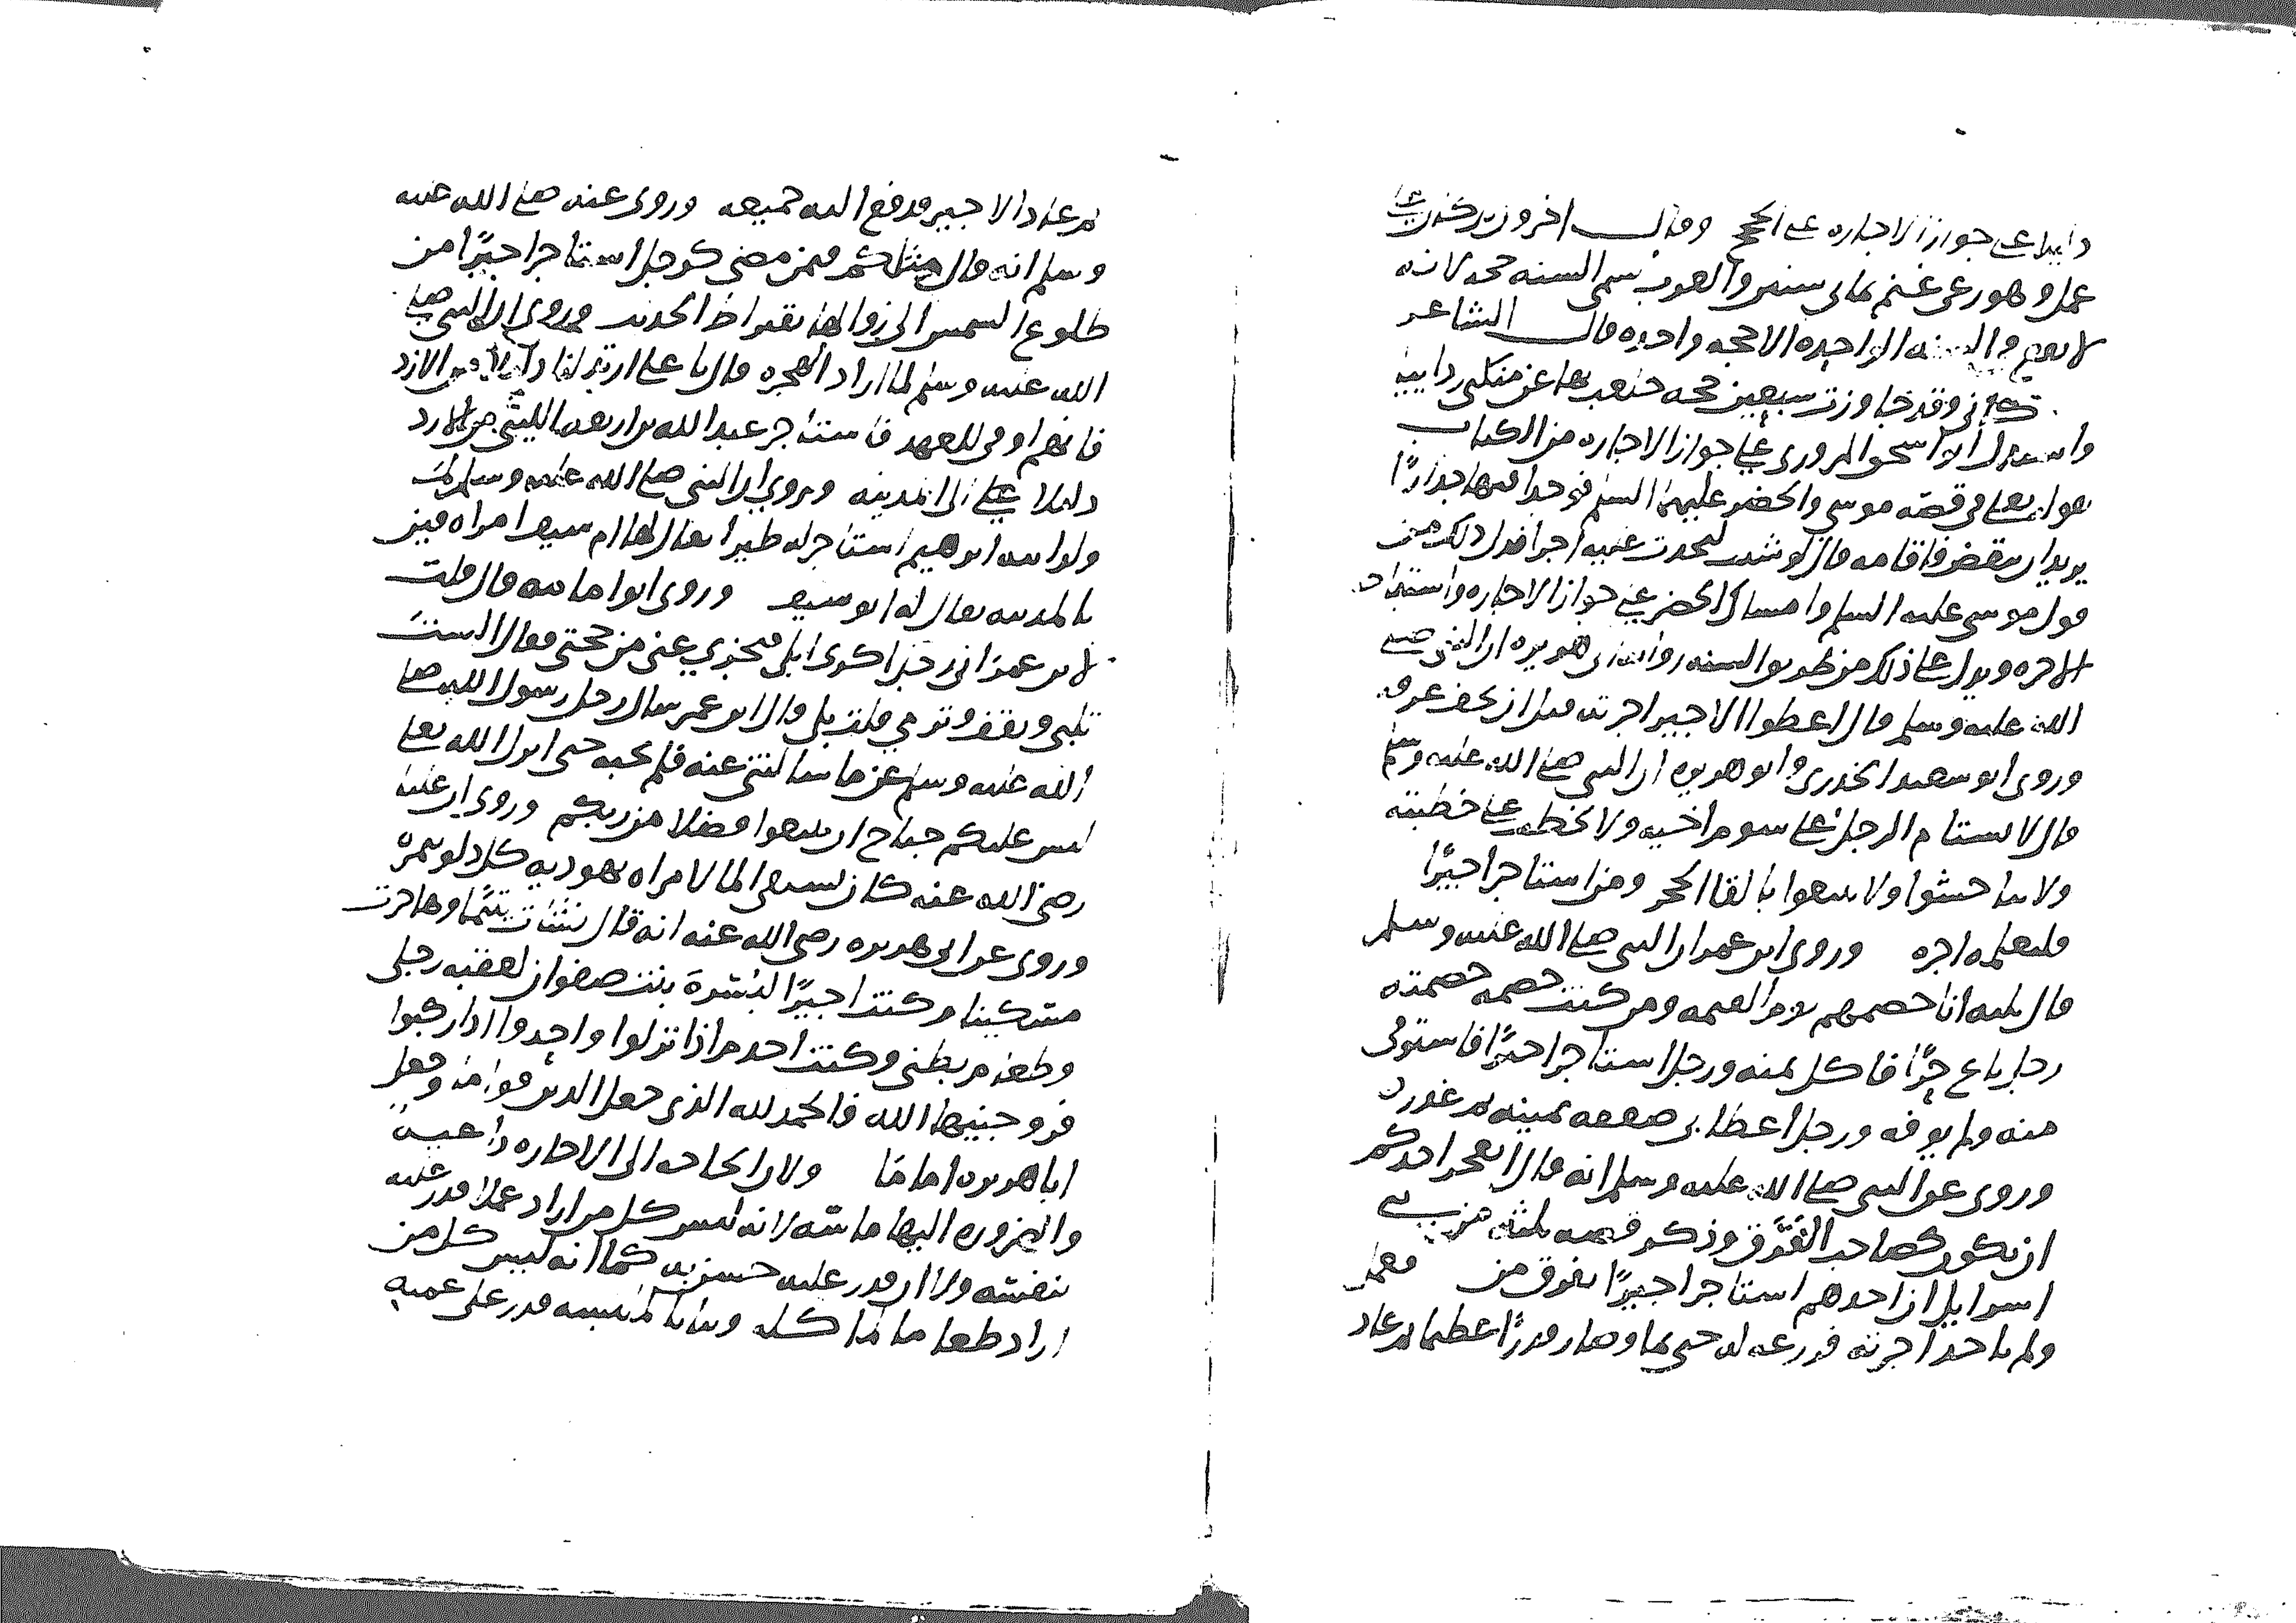 دليلا على جواز الاجاره على الحج وقال اخرون بل ذلك على
عمل وهو رعى غنم ثمانى سنين والعرب تسمى السنه حجه لان
لا يقع فى السنه الواحده الا حجه واحده قال الشاعر
كانى وقد جاوزت سبعين حجه خلعت بها عن منكبى ردائيا
واستدل ابو اسحق المروزى على جواز الاجاره من الكتاب
بقوله تعلى فى قصه موسى والخضر عليهما السلم فوجدا فيها جدارًا
يريد ان ينقض فاقامه قال لو شئت لتخذت عليه اجرا فدل ذلك من
قول موسى عليه السلم وامساك الخضر على جواز الاجاره واستباحه
الاجره ويدل على ذلك من طريق السنه روايه ابى هريره ان النبى صلى
الله عليه وسلم قال اعطوا الاجير اجرته قبل ان يجف عرقه
وروى ابو سعيد الخدرى وابو هريره ان النبى صلى الله عليه وسلم
قال لا يستام الرجل على سوم اخيه ولا يخطب على خطبته
ولا تناجشوا ولا تبيعوا بالقا الحجر ومن استاجر اجيرًا
فليعلمه اجره وروى ابن عمر ان النبى صلى الله عليه وسلم
قال ثلثه انا خصمهم يوم القيمه ومن كنت خصمه خصمته
رجل باع حرًا فاكل ثمنه ورجل استاجر اجيرًا فاستوفى
منه ولم يوفه ورجل اعطا بى صفقه يمينه ثم غدر
وروى عن النبى صلى الله عليه وسلم انه قال ايعجز احدكم
ان يكون كصاحب الفرق وذكر قصه ثلثه من بنى
اسرايل ان احدهم استاجر اجيرًا بفرق من فعمل
ولم ياخذ اجرته فزرعه له حتى نما وصار قدرًا عظيما ثم عاد
ثم عاد الاجير فدفع اليه جميعه وروى عنه صلى الله عليه
وسلم انه قال مثلكم فيمن مضى كرجل استاجر اجيرًا من
طلوع الشمس الى زوالها بقيراط الحديث وروى ان النبى صلى
الله عليه وسلم لما اراد الهجره قال يا على ارتد لنا دليلا من الازد
فانهم اوفى للعهد فاستاجر عبد الله بن اريقط الليثى من الازد
دليلا على الى المدينه وروى ان النبى صلى الله عليه وسلم لما
ولد ابنه ابرهيم استاجر له ظيرا يقال لها ام سيف امراه قين
بالمدينه يقال له ابو سيف وروى ابو امامه قال قلت
لابن عمر انى رجل اكرى ابلى فتجزى عنى من حجتى فقال الست
تلبى وتقف وترمى قلت بلى قال ابن عمر سال رجل رسول الله صلى
الله عليه وسلم عن ما سالتنى عنه فلم يجبه حتى انزل الله تعلى
ليس عليكم جناح ان تبتغوا فضلا من ربكم وروى ان عليا
رضى الله عنه كان يستقى الما لامراه يهوديه كل دلو بتمره
وروى عن ابى هريره رضى الله عنه انه قال نشات يتيما وهاجرت
مسكينا وكنت اجيرًا لبسرة بنت صفوان لعقبه رجلى
وطعام بطنى وكنت اخدم اذا نزلوا واحدوا اذا ركبوا
فزوجنيها الله فالحمد لله الذى جعل الدين قواما وجعل
ابا هريره اماما ولان الحاجه الى الاجاره داعيه
والضروره اليها ماسه لانه ليس كل من اراد عملا قدر عليه
بنفسه ولا ان قدر عليه حسن به كما انه ليس كل من
اراد طعاما لما كله وثيابا للبسه قدر على عمله